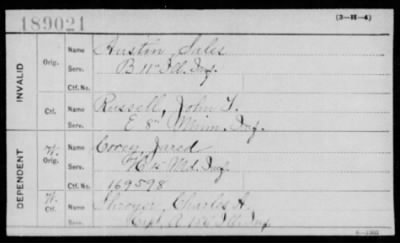 189021
(3—H—4)
INVALID
Orig.
Name Austin, Sules
Serv. B 11" Ill. Inf.
Ctf. No.
Ctf.
Name Russell, John F.
Serv. E 8" Minn. Inf.
DEPENDENT
W.
Orig.
Name Corey, Jared
Serv. Md. Inf.
Ctf. No. 169598
W.
Ctf.
Name Shroyer, Charles A.
Serv. Capt. A Ill. Inf.